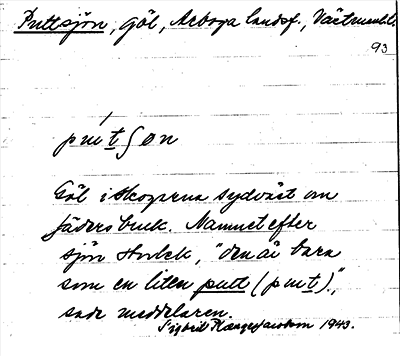 Puttsjön, göl, Arboga landsf., Västmanl.
93
pút̲ʃøn
Göl i skogarna sydväst om
Jäders bruk. Namnet efter
sjön "den är bara
som en liten putt (put̲)",
sade meddelaren.
Sigbrit 1943.